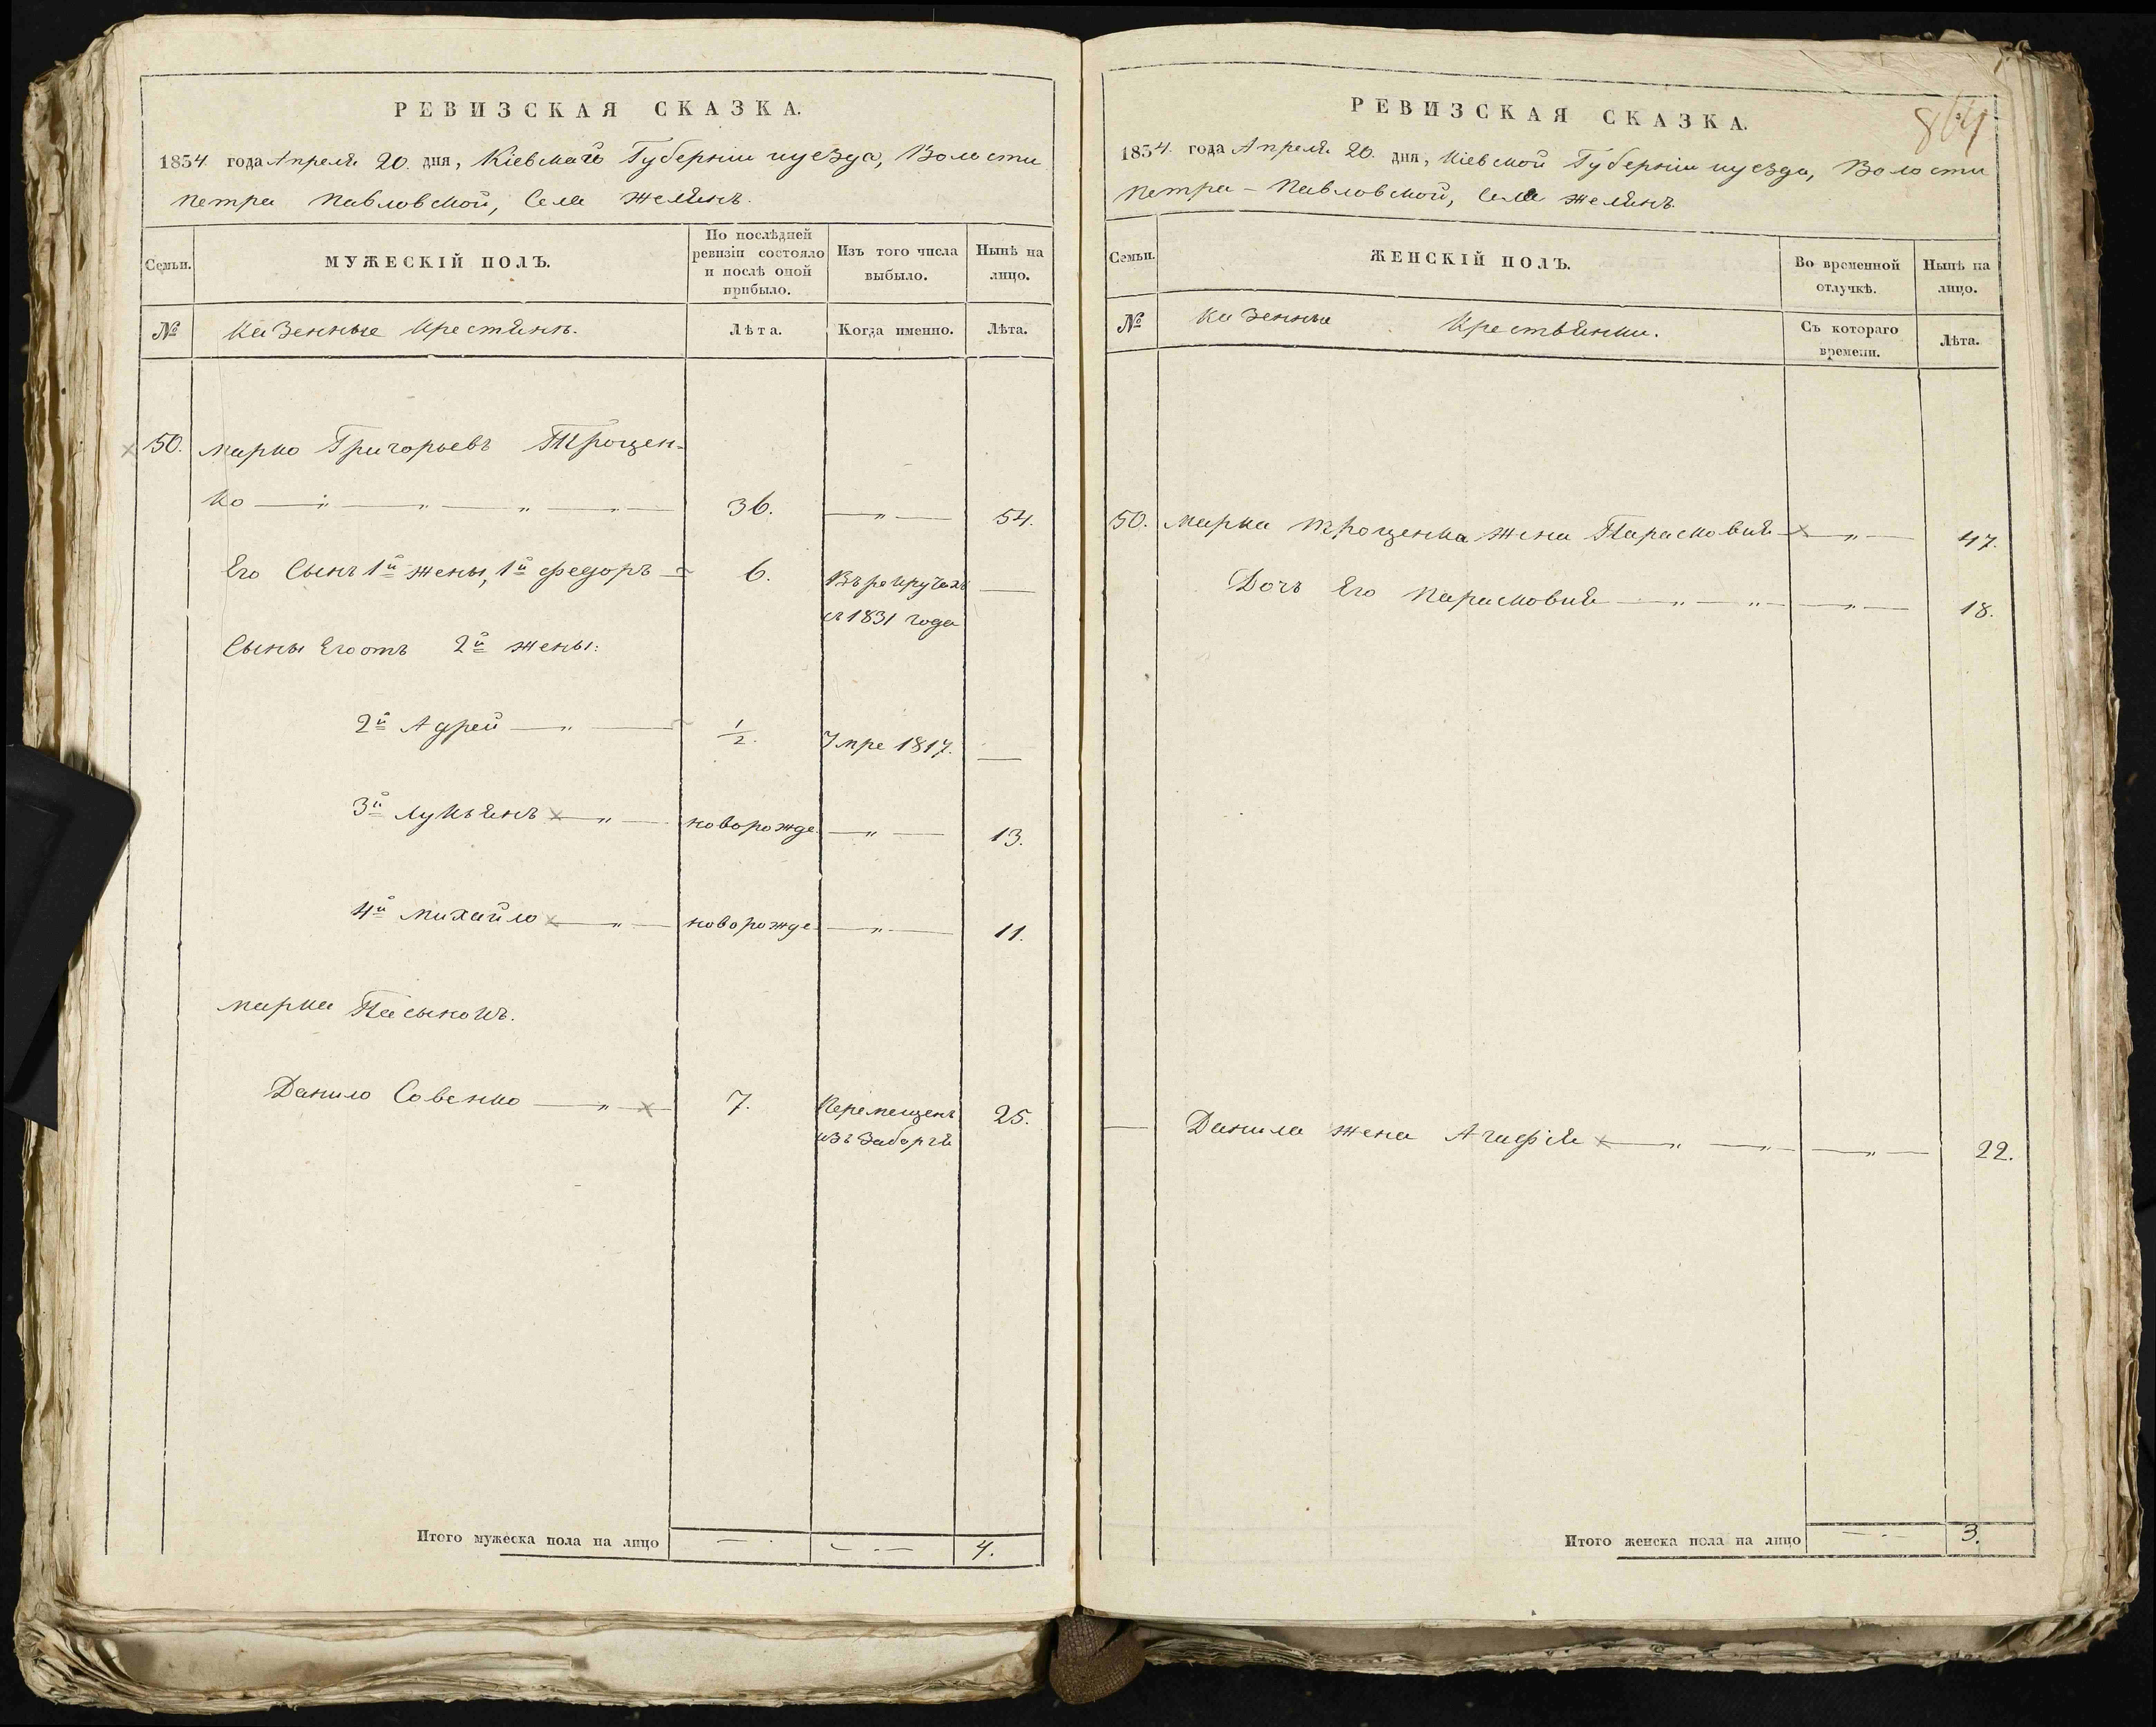 РЕВИЗСКАЯ СКАЗКА.
1834. года Апреля 20. дня, Кіевскаго Губерніи и уезда, Волости
Петра Павловской, Села Желянъ.
Семьи.
МУЖЕСКІЙ ПОЛЪ.
По послѣдней
ревизіи состояло
и послѣ оной
прибыло.
Изъ того числа
выбыло.
Нынѣ на
лицо.
№
Казенные Крестянъ.
Лѣта.
Когда именно.
Лѣта.
50. Марко Григорьевъ Трощен-
ко — 36. — 54.
Его Сынъ 1й жены, 1й Федоръ — 6. Въ рекрутахъ —
съ 1831 года
Сыны Его отъ 2й жены:
2й Адрей — 1/2. Умре 1817. —
3й Лукьянъ — новорожде — 13.
4й Михайло — новорожде — 11.
Марка Пасынокъ.
Данило Совенко — 7. Перемещенъ 25.
изъ Заборья
Итого мужеска пола на лицо — — 4.
864
РЕВИЗСКАЯ СКАЗКА.
1834. года Апреля 20. дня, Кіевской Губерніи и уезда, Волости
Петра-Павловской, Села Желянъ.
Семьи.
ЖЕНСКІЙ ПОЛЪ.
Во временной
отлучкѣ.
Нынѣ на
лицо.
№
Казенные Крестьянки.
Съ котораго
времени.
Лѣта.
50. Марка Трощенка жена Парасковия — 47.
Дочъ Его Парасковия — — 18.
— Данила жена Агафія — — 22.
Итого женска пола на лицо — 3.